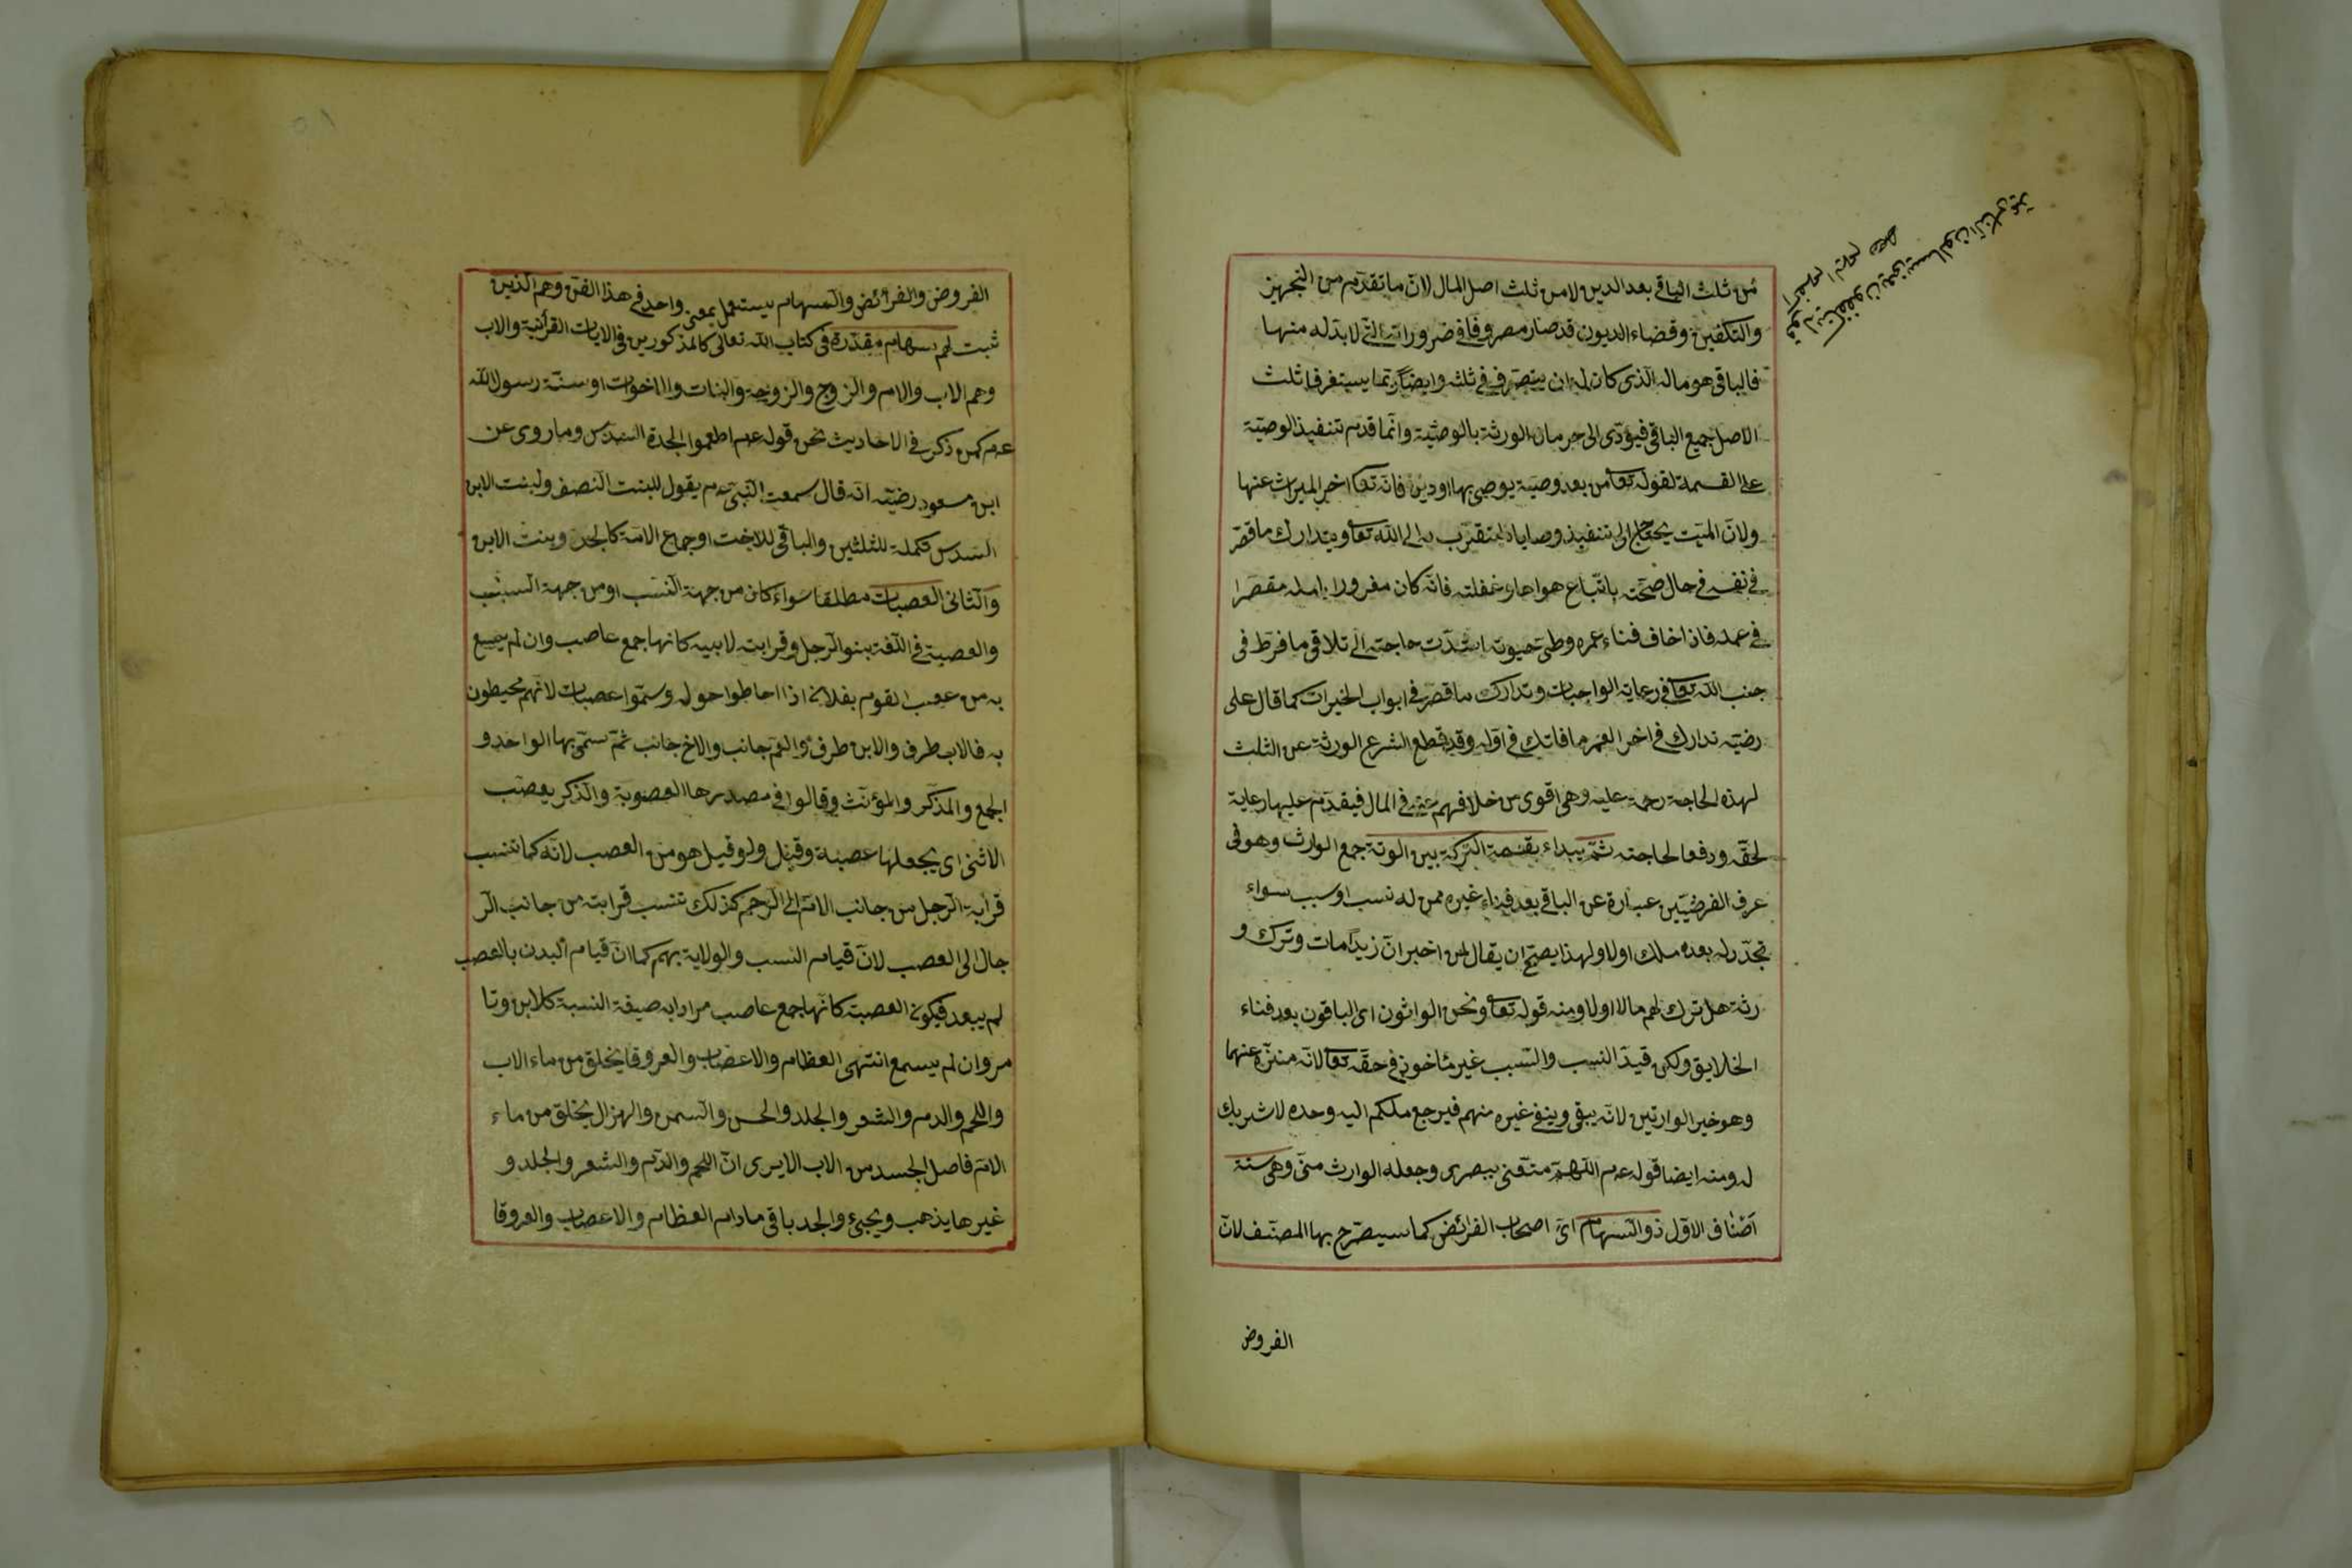 من ثلث الباقي بعد الدين لا من ثلث اصل المال لانّ ما تقدّم من التجهيز
والتكفين وقضاء الديون قد صار مصروفا في ضروراته التي لا بدّ له منها
فالباقي هو ماله الذي كان له ان يتصرّف في ثلثه وايضا ربّما يستغرق ثلث
الاصل جميع الباقي فيؤدّى الى حرمان الورثة بالوصيّة وانّما قدّم تنفيذ الوصيّة
على القسمة لقوله تعا من بعد وصيّة يوصى بها او دين فانّه تعا اخر الميراث عنها
ولانّ الميّت يحتاج الى تنفيذ وصاياه ليتقرّب به الى الله تعا ويتدارك ما قصّر
في نفسه في حال صحّته باتّباع هواها وغفلته فانّه كان مغرورا بامله مقصّرا
في عمله فاذا خاف فناء عمره وطىّ حيوته اشتدّت حاجته الى تلافى ما فرّط في
جنب الله تعا في رعاية الواجبات وتدارك ما قصّر في ابواب الخيرات كما قال على
رضيه تدارك في اخر العمر ما فاتك في اوّله وقد قطع الشرع الورثة عن الثلث
لهذه الحاجة رحمة عليه وهى اقوى من خلافهم عنه في المال فيقدّم عليها رعاية
لحقّه ودفعا لحاجته ثمّ يبداء بقسمة التركة بين الورثة جمع الوارث وهو في
عرف الفرضيّين عبارة عن الباقي بعد فناء غيره ممن له نسب او سبب سواء
تجدّد له بعده ملك اولا ولهذا يصحّ ان يقال لمن اخبر انّ زيدا مات وترك و
رثة هل ترك لهم مالا اولا ومنه قوله تعا ونحن الوارثون اى الباقون بعد فناء
الخلايق ولكن قيد النسب والسبب غير مأخوذ في حقّه تعا لانه منزّه عنهما
وهو خير الوارثين لانّه يبقى ويفنى غيره منهم فيرجع ملكهم اليه وحده لا شريك
له ومنه ايضا قوله عم اللّهمّ متّعنى ببصرى وجعله الوارث منّى وهى ستة
اصناف الاوّل ذو السهام اى اصحاب الفرائض كما سيصرّح بها المصنّف لانّ
الفروض
الفروض والفرائض والسهام يستعمل بمعنى واحد في هذا الفنّ وهم الذين
ثبت لهم سهام مقدّرة في كتاب الله تعالى كالمذكورين في الايات القرأنية والاب
وهم الاب والام والزوج والزوجة والبنات والاخوات او سنّة رسول الله
عم كمن ذكر في الاحاديث نحن قوله عم اطعموا الجدة السدس وما روى عن
ابن مسعود رضيه انّه قال سمعت النّبىّ عم يقول للبنت النصف ولبنت الابن
السدس تكملة للثلثين والباقي للاخت او جماع الامّة كالجد وبنت الابن
والثانى العصبات مطلقا سواء كان من جهة النسب او من جهة السبب
والعصبة في اللّغة بنوا الرجل وقرابته لابيه كانها جمع عاصب وان لم يسمع
به من عصب القوم بفلان اذا احاطوا حوله وسمّوا عصبات لانّهم محيطون
به فالاب طرف والابن طرف والعمّ جانب والاخ جانب ثمّ سمّى بها الواحد و
الجمع والمذكّر والمؤنّث وقالوا في مصدرها العصوبة والذكر يعصّب
الانثى اى يجعلها عصبة وقيل ولو قيل هو من العصب لانّه كما تنسب
قرابة الرجل من جانب الامّ الى الرحم كذلك تنسب قرابته من جانب الر
جال الى العصب لانّ قيام النسب والولاية بهم كما انّ قيام البدن بالعصب
لم يبعد فيكون العصبة كانّها جمع عاصب مرادا به صيغة النسبة كلابن وتا
مر وان لم يسمع انتهى العظام والاعصاب والعروق يخلق من ماء الاب
واللحم والدم والشعر والجلد والحسن والسمن والهزال يخلق من ماء
الامّ فاصل الجسد من الاب الا يرى انّ اللحم والدّم والشعر والجلد و
غيرها يذهب ويجئ والجد باقى مادام العظام والاعصاب والعروقا